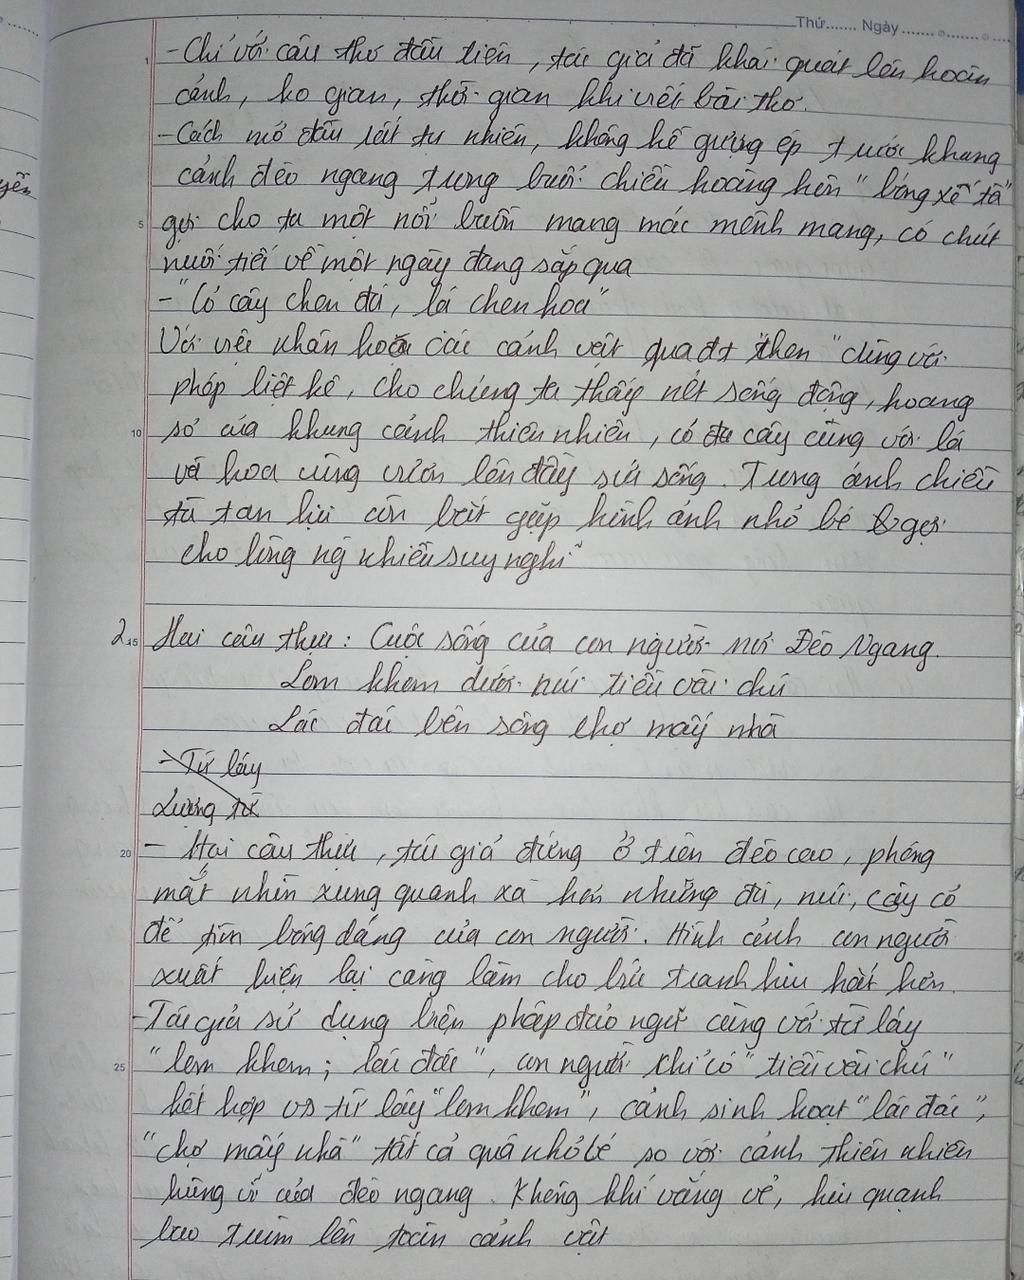 Thứ....... Ngày.......
- Chỉ với câu thơ đầu tiên, tác giả đã khái quát lên hoàn
cảnh, ko gian, thời gian khi viết bài thơ.
- Cách mở đầu rất tự nhiên, không hề gượng ép trước khung
cảnh đèo ngang trong buổi chiều hoàng hôn "bóng xế tà"
5 gợi cho ta một nỗi buồn mang mác mênh mang, có chút
nuối tiếc về một ngày đang sắp qua
- "Cỏ cây chen đá, lá chen hoa"
Với việc nhân hoá các cảnh vật qua đt "chen" cùng với
phép liệt kê, cho chúng ta thấy nét sống động, hoang
10 sơ của khung cảnh thiên nhiên, cỏ cây cùng với lá
và hoa cùng vươn lên đầy sức sống. Trong ánh chiều
tà tan lụi còn bắt gặp hình ảnh nhỏ bé gợi
cho lòng ng nhiều suy nghĩ
2. 15 Hai câu thực: Cuộc sống của con người nơi Đèo Ngang.
Lom khom dưới núi tiều vài chú
Lác đác bên sông chợ mấy nhà
- Từ láy
Lượng từ
20 - Hai câu thực, tác giả đứng ở trên đèo cao, phóng
mắt nhìn xung quanh xa hơn những đá, núi, cây cỏ
để tìm bóng dáng của con người. Hình ảnh con người
xuất hiện lại càng làm cho bức tranh hiu hắt hơn.
- Tác giả sử dụng biện pháp đảo ngữ cùng với từ láy
25 "lom khom; lác đác", con người chỉ có "tiều vài chú"
kết hợp vs từ láy "lom khom", cảnh sinh hoạt "lác đác",
"chợ mấy nhà" tất cả quá nhỏ bé so với cảnh thiên nhiên
hùng vĩ của đèo ngang. Không khí vắng vẻ, hiu quạnh
bao trùm lên toàn cảnh vật